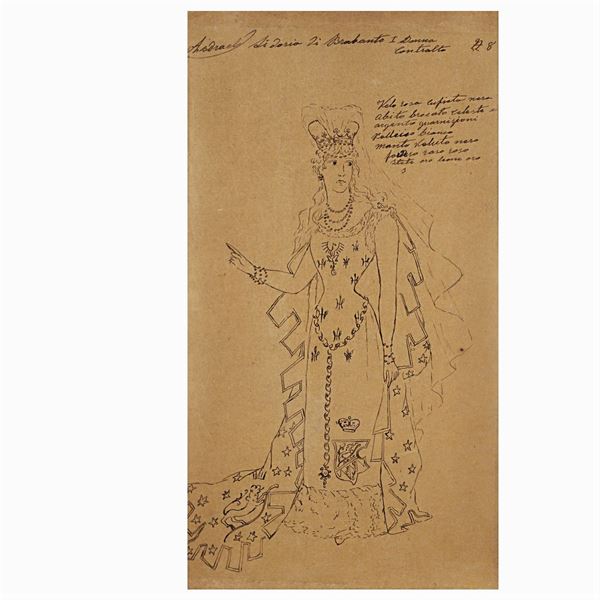 Sidoria di Brabante I Donna
Contralto
8
Velo rosa nero
Abito brocato celeste e
argento guarnizioni
bianco
Manto Veluto nero
fodero raso rosa
oro leone oro
3